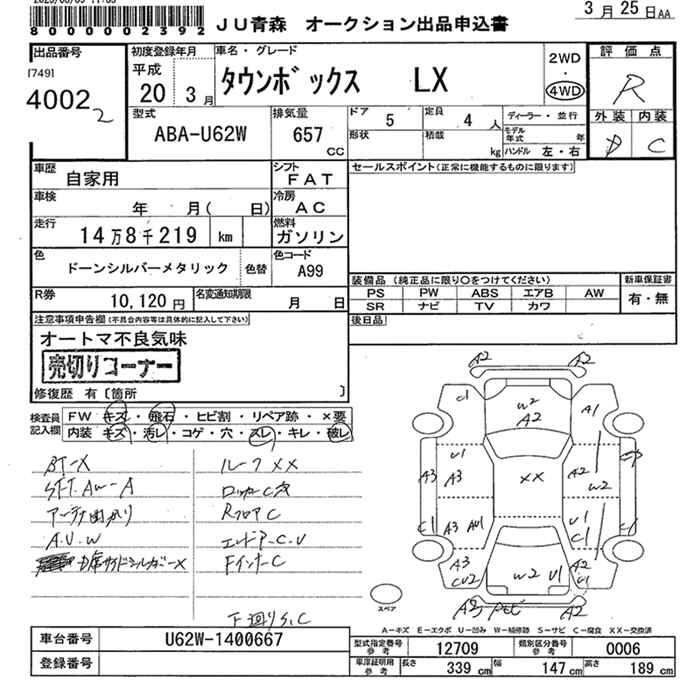 8000002392 JU青森 オークション出品申込書 3月25日AA
出品番号 初度登録年月 車名・グレード 評価点
[749] 4002 2
平成 20 3月 タウンボックス LX 2WD・4WD R
型式 排気量 ドア 5 定員 4 人 ディーラー・並行 外装 内装
ABA-U62W 657 CC 形状 積載 kg モデル年式 年 ハンドル 左・右 D C
車歴 自家用 シフト FAT セールスポイント(正常に機能するものに限ります)
車検 年 月( 日) 冷房 AC
走行 14万8千219 km 燃料 ガソリン
色 ドーンシルバーメタリック 色替 色コード A99
装備品(純正品に限り○をつけてください) 新車保証書
R券 10,120円 名変通知期限 月 日 PS PW ABS エアB AW 有・無
SR ナビ TV カワ
注意事項申告欄(不具合内容等は具体的に記入して下さい) 後日品
オートマ不良気味
売切りコーナー
修復歴 有〔箇所 〕
検査員記入欄 FW キズ・飛石・ヒビ割・リペア跡・×要
内装 キズ・汚レ・コゲ・穴・スレ・キレ・破レ
BT-X ルーフXX
SFT.AW-A
アンテナ曲がり RフロアC
A.U.W エンドP-C.U
サイドシルカバー× FインナーC
下回りS.C
A2 A2
d W2 A2 A1
U1 A3 A3 XX A2 W2
C1 A3 AU1 U1 C1
A3 CU2 W2 U1 A2 U1
A3 A2
スペア
A-キズ E-エクボ U-凹み W-補修跡 S-サビ C-腐食 XX-交換済
車台番号 U62W-1400667 型式指定番号 参考 12709 類別区分番号 参考 0006
登録番号 車庫証明用 参考 長さ 339 cm 幅 147 cm 高さ 189 cm